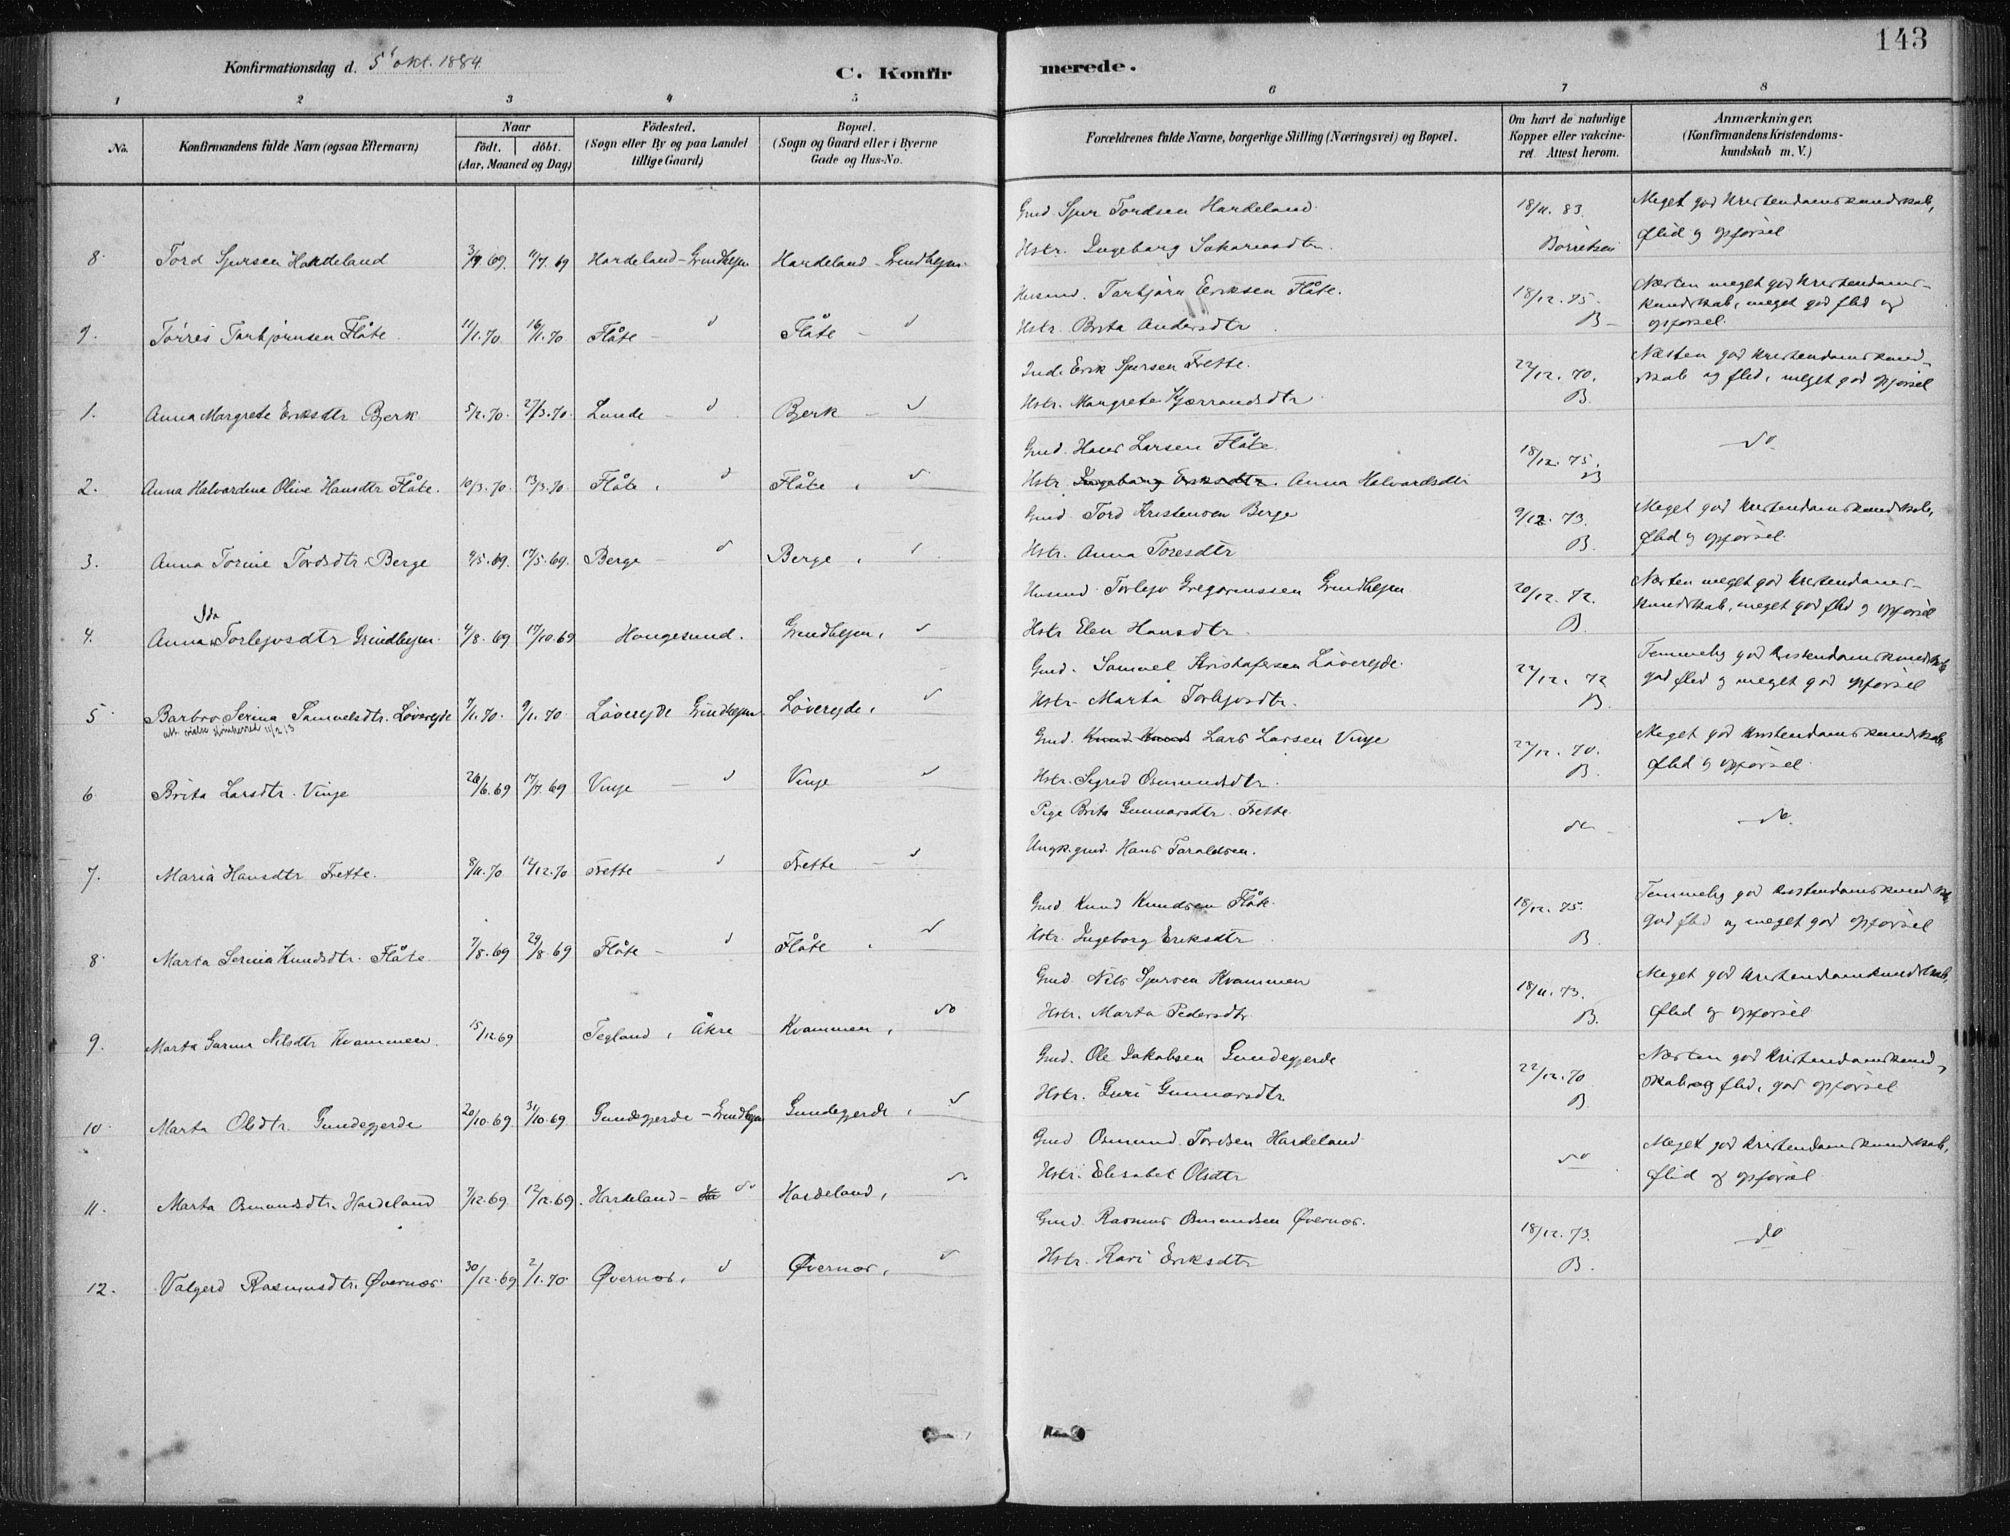 143
Konfirmationsdag d. 5' okt. 1884
C. Konfirmerede.
1 2 3 4 5 6 7 8
No. Konfirmandens fulde Navn (ogsaa Efternavn) Naar födt. döbt. (Aar, Maaned og Dag) Födested. (Sogn eller By og paa Landet tillige Gaard) Bopæl. (Sogn og Gaard eller i Byerne Gade og Hus-No. Forældrenes fulde Navne, borgerlige Stilling (Næringsvei) og Bopæl. Om havt de naturlige Kopper eller vakcineret. Attest herom. Anmærkninger. (Konfirmandens Kristendomskundskab m. V.)
Gmd. Sjur Tordsen Hardeland 18/11. 83. Meget god Kristendomskundskab,
8. Tord Sjursen Hardeland 11/7 69 Hardeland - Grindhejm Hardeland - Grindhejm Hstr. Ingeborg Børretsen flid og opførsel
Husmd. Torbjørn Eriksen Flåte. 18/12. 75. Næsten meget god Kristendoms-
kundskab, meget god flid og
9. Tørres Torbjørnsen Flåte 11/1. 70 16/1. 70 Flåte - d Flåte - d Hstr. Brita Andersdtr B - opførsel.
Inds. Erik Sjursen Frette. 22/12. 70. Næsten god Kristendomskund-
1. Anna Margrete Eriksdtr Bjerk 5/2. 70. 27/3. 70. Lunde - d Bjerk - d Hstr. Margrete B. skab og flid, meget god opførsel
Gmd. Hans Larsen Flåte 18/12. 75. do
2. Anna Halvardena Oline Hansdtr Flåte. 10/3. 70 13/3. 70 Flåte, d Flåte, d Hstr. Ingeborg Eriksdtr. Anna Halvardsdtr B
Gmd. Tord Kristensen Berge 9/12. 73. Meget god Kristendomskundskab,
3. Anna Torine Tordsdtr. Berge 17/5. 69. Berge - d Berge, Hstr. Anna Toresdtr B. flid og opførsel
Husmd Torlejv Gregoriussen Grindhejm 20/12. 72. Næsten meget god Kristendoms-
4. Anna Ida Torlejvsdtr Grindhejm 17/10 69 Hougesund. Grindhejm, d Hstr. Elen Hansdtr. B. kundskab, meget god flid og opførsel
Gmd. Samuel Kristofersen Løverejde 22/12. 72 Temmelig god Kristendomskundskab
5 Barbro Serina Samuelsdtr. Løverejde 7/1. 70. 9/1. 70 Løverejde Grindhejm Løverejde, d Hstr. Marta Torlejvsdtr. B. god flid og meget god opførsel
11/2 13
Gmd. Knud Knud Lars Larsen Vinje 22/12. 70. Meget god Kristendomskundskab
6 Brita Larsdtr. Vinje 26/6. 69 17/7. 69 Vinje - d Vinje d Hstr. Sigrid Osmundsdtr. B. flid og opførsel.
Pige Brita Gunnarsdtr. Frette. do do.
7. Maria Hansdtr Frette. 8/11. 70 12/12. 70 Frette - d Frette - d Ungk. gmd. Hans Taraldsen.
Gmd Knud Knudsen Flåte 18/12. 75. Temmelig god Kristendomskundskab
8. Marta Serina Knudsdtr. Flåte 7/8. 69 29/8. 69 Flåte - d Flåte, d Hstr. Ingeborg Eriksdtr B. god flid og meget god opførsel
Gmd. Nils Sjursen Kvammen 18/11. 73. Meget god Kristendomskundskab,
9. Marta Nilsdtr Kvammen. 15/12. 69 Tegland, Åkre Kvammen, do Hstr. Marta Pedersdtr B. flid og opførsel
Gmd. Ole Jakobsen Gundegjerde 22/12. 70 Næsten god Kristendomskund-
10. Marta Olsdtr. Gundegjerde 20/10. 69 31/10. 69 Gundegjerde - Grindhejm Gundegjerde, d Hstr. Guri Gunnarsdtr B. skab og flid, god opførsel
Gmd Osmund Tordsen Hardeland do Meget god Kristendomskundskab,
11. Marta Osmundsdtr. Hardeland 7/12. 69 12/12. 69 Hardeland - Ha do Hardeland, do Hstr. Elisabet Olsdtr flid og opførsel
Gmd. Rasmus Osmundsen Øvernæs. 18/12. 73. do
12. Valgerd Rasmusdtr. Øvernæs 30/12. 69 2/1. 70 Øvernæs, d Øvernæs, d Hstr. Kari Eriksdtr B.